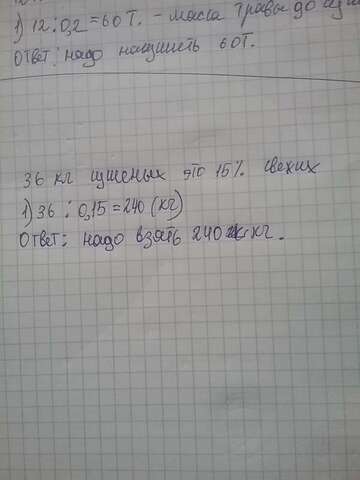 1) 12 : 0,2 = 60 т. - масса травы до
Ответ: надо насушить 60т.
36 кг сушеных это 15% свежих
1) 36 : 0,15 = 240 (кг)
Ответ: надо взять 240 кг.